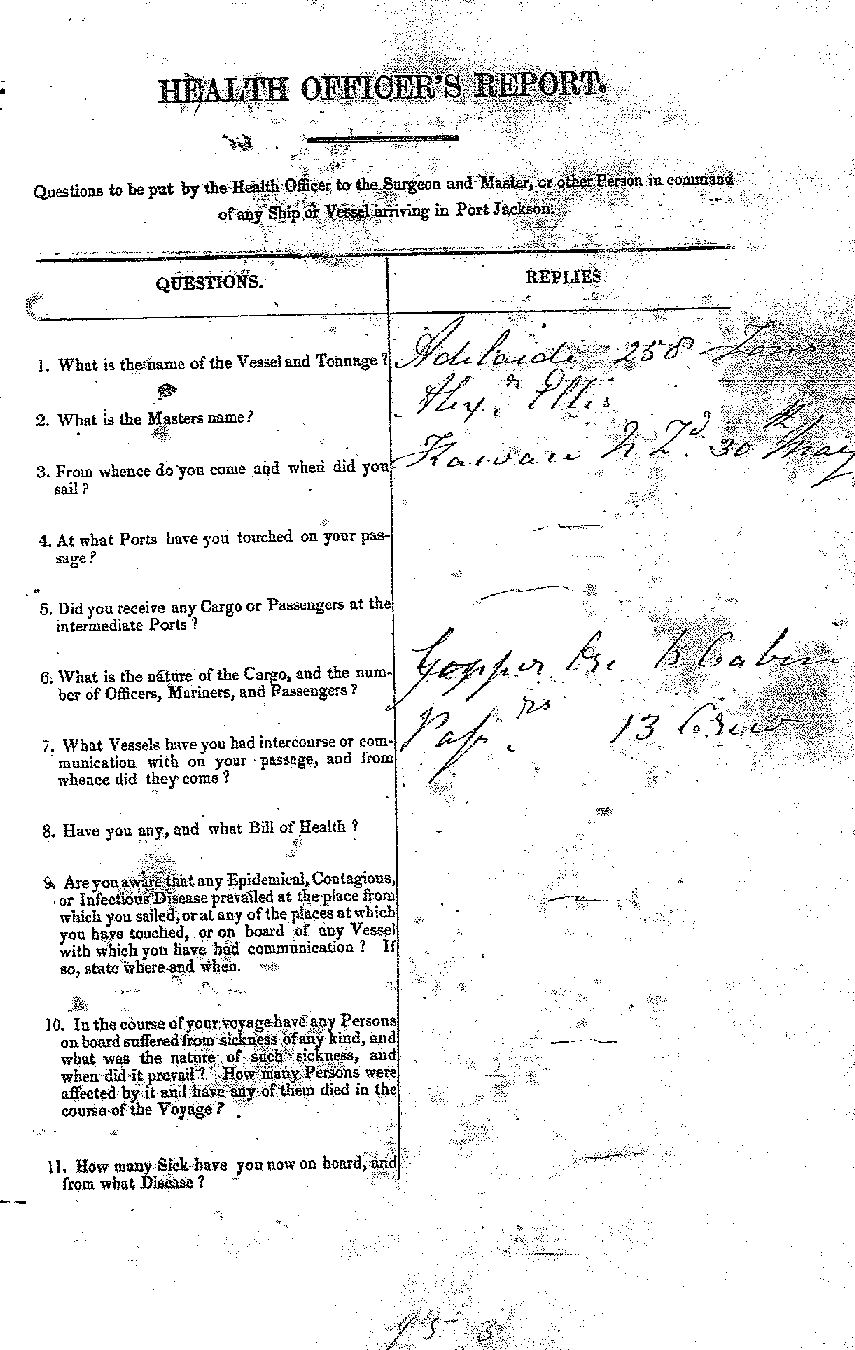 HEALTH OFFICER'S REPORT.
Questions to be put by the Health Officer to the Surgeon and Master, or other Person in command
of any Ship or Vessel arriving in Port Jackson.
QUESTIONS.
REPLIES
1. What is the name of the Vessel and Tonnage?
Adelaide 258 Tons
2. What is the Masters name?
Alexr. Ellis
3. From whence do you come and when did you
sail?
Kawau N Zd. 30th May
4. At what Ports have you touched on your pas-
sage?
—
5. Did you receive any Cargo or Passengers at the
intermediate Ports?
—
6. What is the nature of the Cargo, and the num-
ber of Officers, Mariners, and Passengers?
Copper Ore Cabin
7. What Vessels have you had intercourse or com-
munication with on your passage, and from
whence did they come?
Passrs. 13 Crew
8. Have you any, and what Bill of Health?
9. Are you aware that any Epidemical, Contagious,
or Infectious Disease prevailed at the place from
which you sailed, or at any of the places at which
you have touched, or on board of any Vessel
with which you have had communication? If
so, state where and when.
—
10. In the course of your voyage have any Persons
on board suffered from sickness of any kind, and
what was the nature of such sickness, and
when did it prevail? How many Persons were
affected by it and have any of them died in the
course of the Voyage?
—
11. How many Sick have you now on board, and
from what Disease?
—